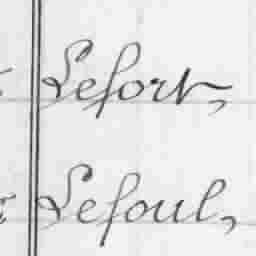 Lefort,
Lefoul,